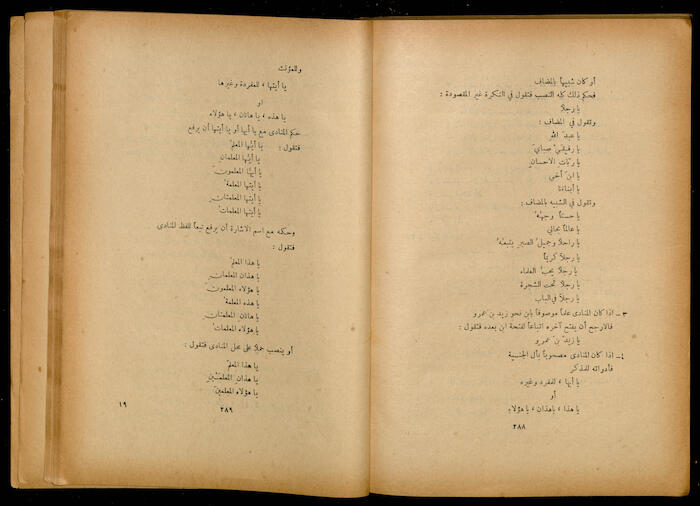 أو كان شبيهاً بالمضاف
فحكم ذلك كله النصب فتقول في النكرة غير المقصودة :
يا رجلاً
وتقول في المضاف :
يا عبدَ الله
يا رفيقيْ صباي
يا ربّات الاحسان
يا ابن أخي
يا أبناءَنا
وتقول في الشبيه بالمضاف :
يا حسناً وجههُ
يا عالماً بحالي
يا راحلاً وجميلُ الصبر يتبعهُ
يا رجلاً كريماً
يا رجلاً يحبّ العلماء
يا رجلاً تحت الشجرة
يا رجلاً في الباب
٣ – اذا كان المنادى علماً موصوفاً بابن نحو زيد بن عمرو
فالارجح أن يفتح آخره اتباعاً لفتحة ابن بعده فتقول :
يا زيدَ بنَ عمرو
٤ – اذا كان المنادى مصحوباً بأل الجنسية
فأدواته للمذكر
يا أيها ، للمفرد وغيره
أو
يا هذا ، يا هذان ، يا هؤلاء
٢٨٨
وللمؤنث
يا أيتها ، للمفردة وغيرها
او
يا هذه ، يا هاتان ، يا هؤلاء
حكم المنادى مع يا أيها أو يا أيتها أن يرفع
فتقول : يا أيُّها المعلمُ
يا أيُّها المعلمانِ
يا أيُّها المعلمونَ
يا أيتها المعلمةُ
يا أيتها المعلمتانِ
يا أيتها المعلماتُ
وحكمه مع اسم الاشارة أن يرفع تبعاً للفظ المنادى
فتقول :
يا هذا المعلمُ
يا هذان المعلمانِ
يا هؤلاء المعلمونَ
يا هذه المعلمةُ
يا هاتان المعلمتانِ
يا هؤلاء المعلماتُ
أو ينصب حملاً على محل المنادى فتقول :
يا هذا المعلمَ
يا هذان المعلمَيْنِ
يا هؤلاء المعلمينَ
٢٨٩
١٩